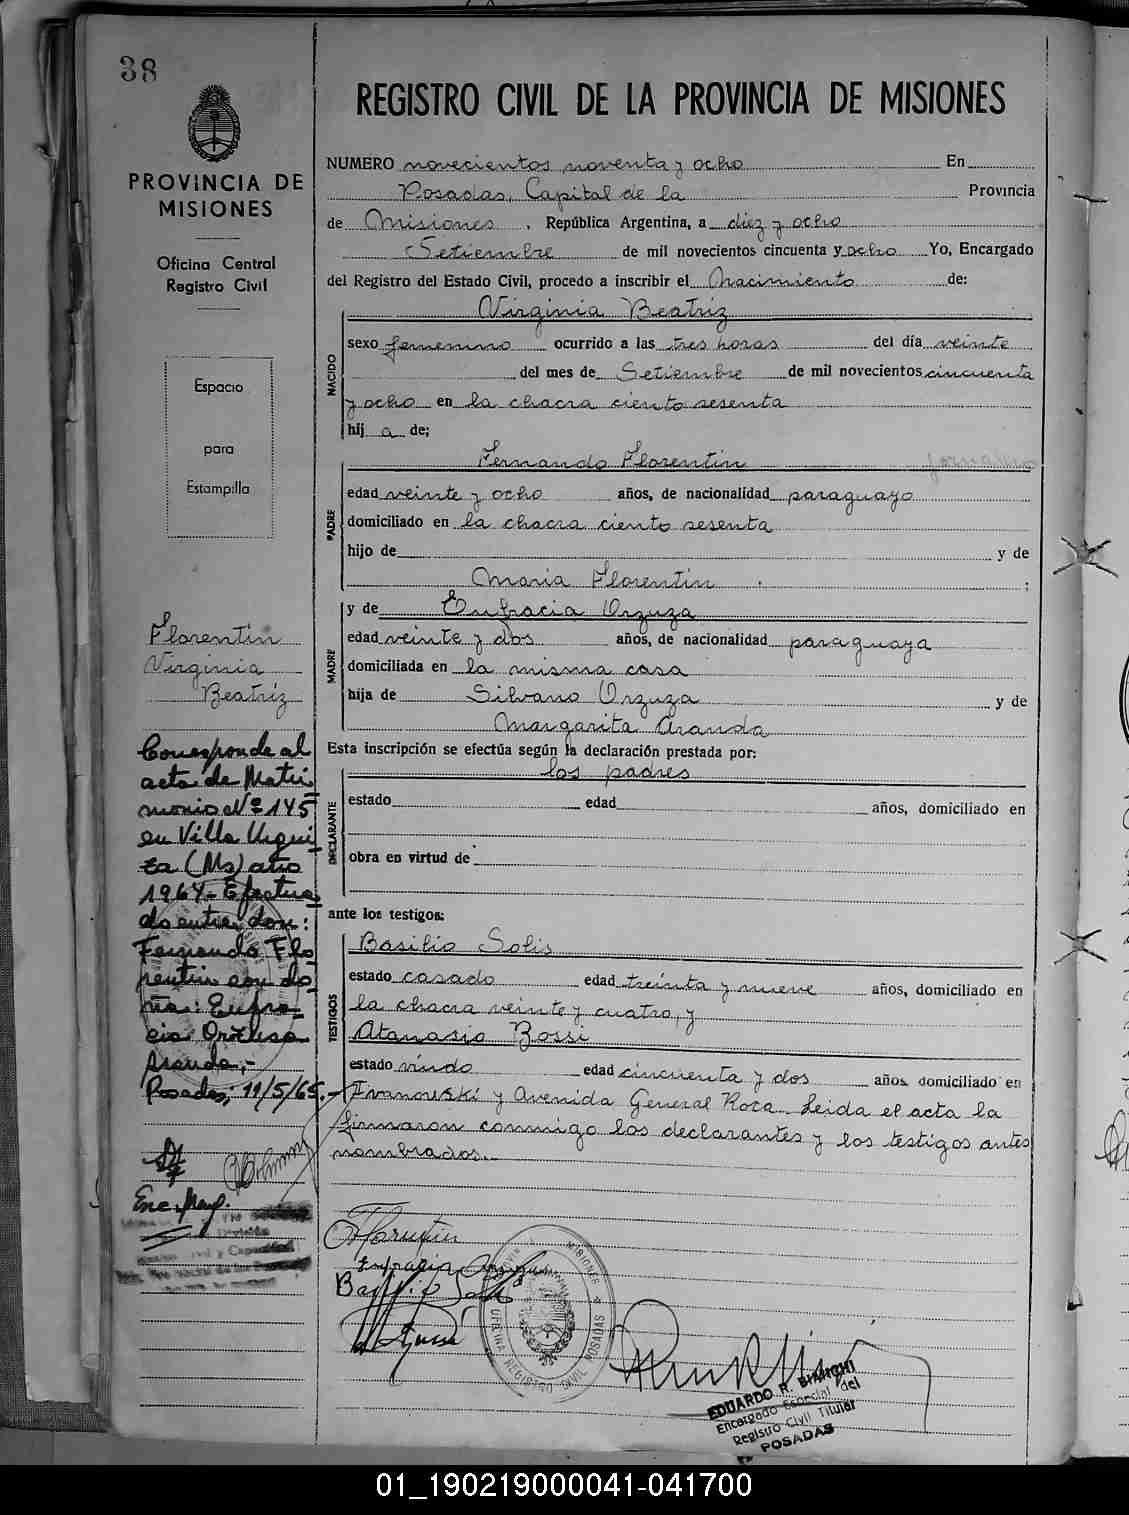 38
PROVINCIA DE
MISIONES
Oficina Central
Registro Civil
Espacio
para
Estampilla
Florentin
Virginia
Beatriz
Corresponde al
acta de Matri
monio Nº 145
en Villa Urqui
za (Ms) año
1964 - Efectua
do entre don:
Fernando Flo
rentin con do
ña: Eufra-
cia Orzusa
Aranda.-
Posadas, 11/5/65.-
Enc. Mayl.
REGISTRO CIVIL DE LA PROVINCIA DE MISIONES
NUMERO novecientos noventa y ocho En
Posadas, Capital de la Provincia
de Misiones, República Argentina, a diez y ocho
Setiembre de mil novecientos cincuenta y ocho Yo, Encargado
del Registro del Estado Civil, procedo a inscribir el Nacimiento de:
NACIDO
Virginia Beatriz
sexo femenino ocurrido a las tres horas del día veinte
del mes de Setiembre de mil novecientos cincuenta
y ocho en la chacra ciento sesenta
hij a de;
PADRE
Fernando Florentin jornalero
edad veinte y ocho años, de nacionalidad paraguayo
domiciliado en la chacra ciento sesenta
hijo de y de
Maria Florentin ;
MADRE
y de Eufracia Orzuza
edad veinte y dos años, de nacionalidad paraguaya
domiciliada en la misma casa
hija de Silvano Orzuza y de
Margarita Aranda
Esta inscripción se efectúa según la declaración prestada por:
DECLARANTE
los padres
estado edad años, domiciliado en
obra en virtud de
ante los testigos:
TESTIGOS
Basilio Solis
estado casado edad treinta y nueve años, domiciliado en
la chacra veinte y cuatro, y
Atanasio Bossi
estado viudo edad cincuenta y dos años, domiciliado en
Ivanouski y Avenida General Roca. Leida el acta la
firmaron conmigo los declarantes y los testigos antes
nombrados.-
Florentin
Eufracia
Basilio Solis
OFICINA REGISTRO CIVIL POSADAS
MISIONES
EDUARDO R. BIANCHI
Encargado Especial del
Registro Civil Titular
POSADAS
01_190219000041-041700